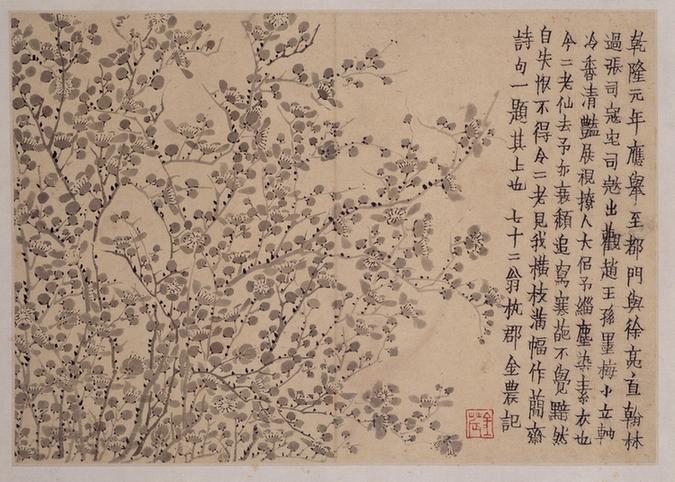 乾隆元年應舉至都門與徐亮直翰林
過張司寇宅司寇出觀趙王孫墨梅小立軸
冷香清艷展視撩人大佀予緇塵染素衣也
今二老仙去予亦衰頹追寫寒葩不覺黯然
自失恨不得令二老見我橫枝滿幅作蕳齋
詩句一題其上也 七十二翁杭郡金農記